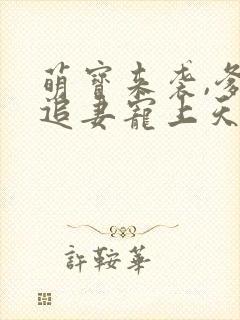 萌寶來袭,爹
追妻寵上天
許鞍華